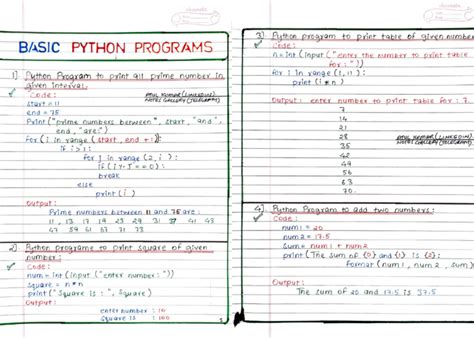 BASIC PYTHON PROGRAMS
1] Python Program to print all prime number in
given interval.
Code:
start = 11
end = 75
Print("prime numbers between", start, "and",
end, "are:")
for i in range (start, end +1):
if i > 1:
for j in range (2, i):
if (i % j == 0):
break
else
print(i)
Output:
Prime numbers between 11 and 75 are:
11 13 17 19 23 29 31 37 41 43
47 59 61 67 71 73
2] Python programe to print square of given
number:
Code:
num = int (input ("enter number:"))
square = n*n
print("Square is:", Square)
Output:
enter number: 10
square is: 100
3] Python program to print table of given number
Code:
n = int (input ("enter the number to print table
for:"))
for i in range (1, 11):
print (i*n)
Output: enter number to print table for: 7.
7
14
21
28
35
42
49
56
63
70.
4] Python Program to add two numbers:
Code:
num1 = 20
num2 = 17.5
Sum = num1 + num2
print(The sum of {0} and {1} is {2}:
format (num1, num2, sum)
Output:
The sum of 20 and 17.5 is 37.5